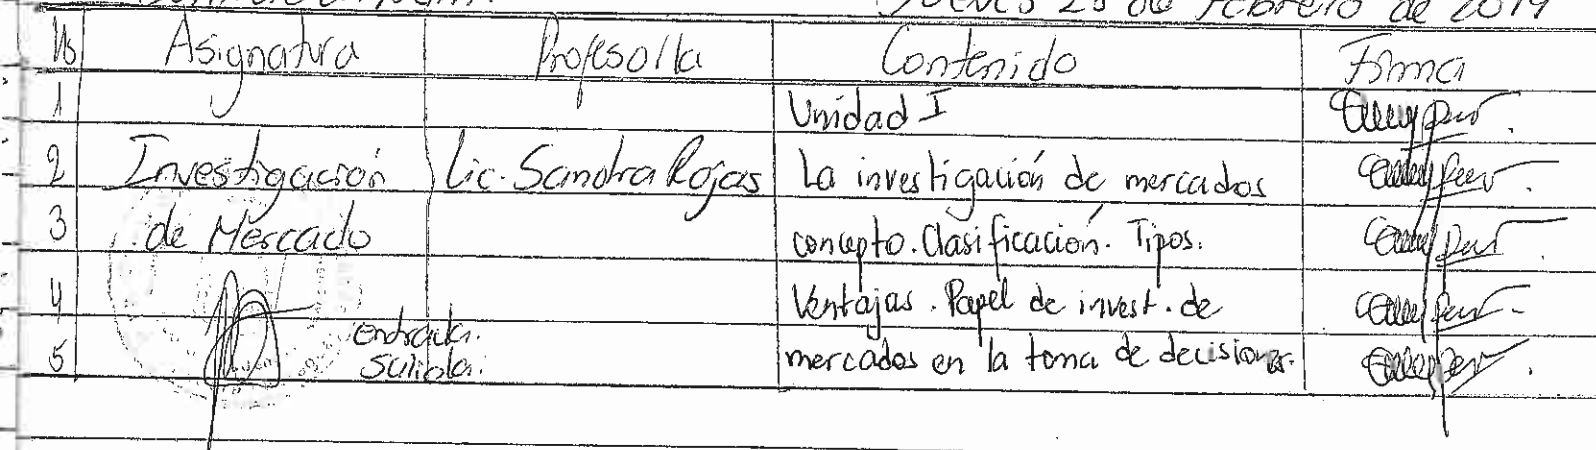 Jueves 28 de Febrero de 2019
Hs Asignatura Profesor/a Contenido Firma
1 Unidad I
2 Investigación Lic. Sandra Rojas La investigación de mercados
3 de Mercado concepto. Clasificación. Tipos.
4 Ventajas. Papel de invest. de
entrada.
5 mercados en la toma de decisiones.
salida.